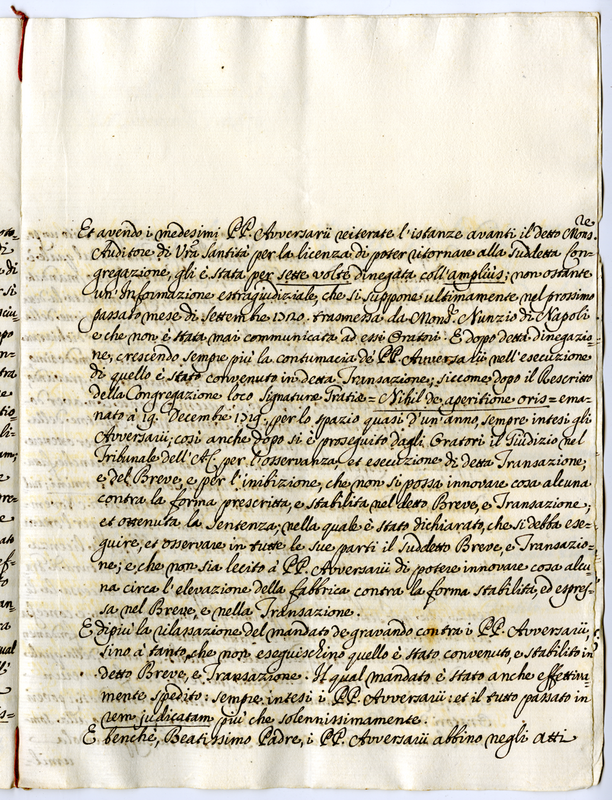 Et avendo i medesimi PP. Avversarii reiterate l'istanze avanti il detto Mons.re
Auditore di Vra Santità per la licenza di poter ritornare alla suddetta Con-
gregazione, gli è stata per sette volte dinegata coll'amplius; non ostante
un'Informazione estragiudiziale, che si suppone ultimamente nel prossimo
passato mese di Settembre 1720. trasmessa da Mons. Nunzio di Napoli
e che non è stata mai communicata ad essi Oratori. E dopo detta dinegazio-
ne, crescendo sempre più la contumacia de' PP. Avversarii nell'esecuzione
di quello è stato convenuto in detta Transazione; siccome dopo il Rescritto
della Congregazione loco Signature Gratie = Nihil de aperitione oris = ema-
nato à 19. Decembre 1719. per lo spazio quasi d'un'anno, sempre intesi gli
Avversarii; così anche dopo si è proseguito dagli Oratori il Giudizio nel
Tribunale dell'AC. per l'osservanza, et esecuzione di detta Transazione;
e del Breve, e per l'inibizione, che non si possa innovare cosa alcuna
contra la forma prescritta, e stabilita nel detto Breve, e Transazione;
et ottenuta la Sentenza, nella quale è stato dichiarato, che si debba ese-
guire, et osservare in tutte le sue parti il suddetto Breve, e Transazio-
ne; e che non sia lecito à PP. Avversarii di potere innovare cosa alcu-
na circa l'elevazione della fabbrica contra la forma stabilità, ed espres-
sa nel Breve, e nella Transazione.
E dipiù la rilassazione del mandato de gravando contra i PP. Avversarii,
sino à tanto, che non eseguischino quello è stato convenuto, e stabilito in
detto Breve, e Transazione. Il qual mandato è stato anche effettiva
mente spedito: sempre intesi i PP. Avversarii: et il tutto passato in
rem judicatam più che solennissimamente.
E benchè, Beatissimo Padre, i PP. Avversarii abbino negli atti